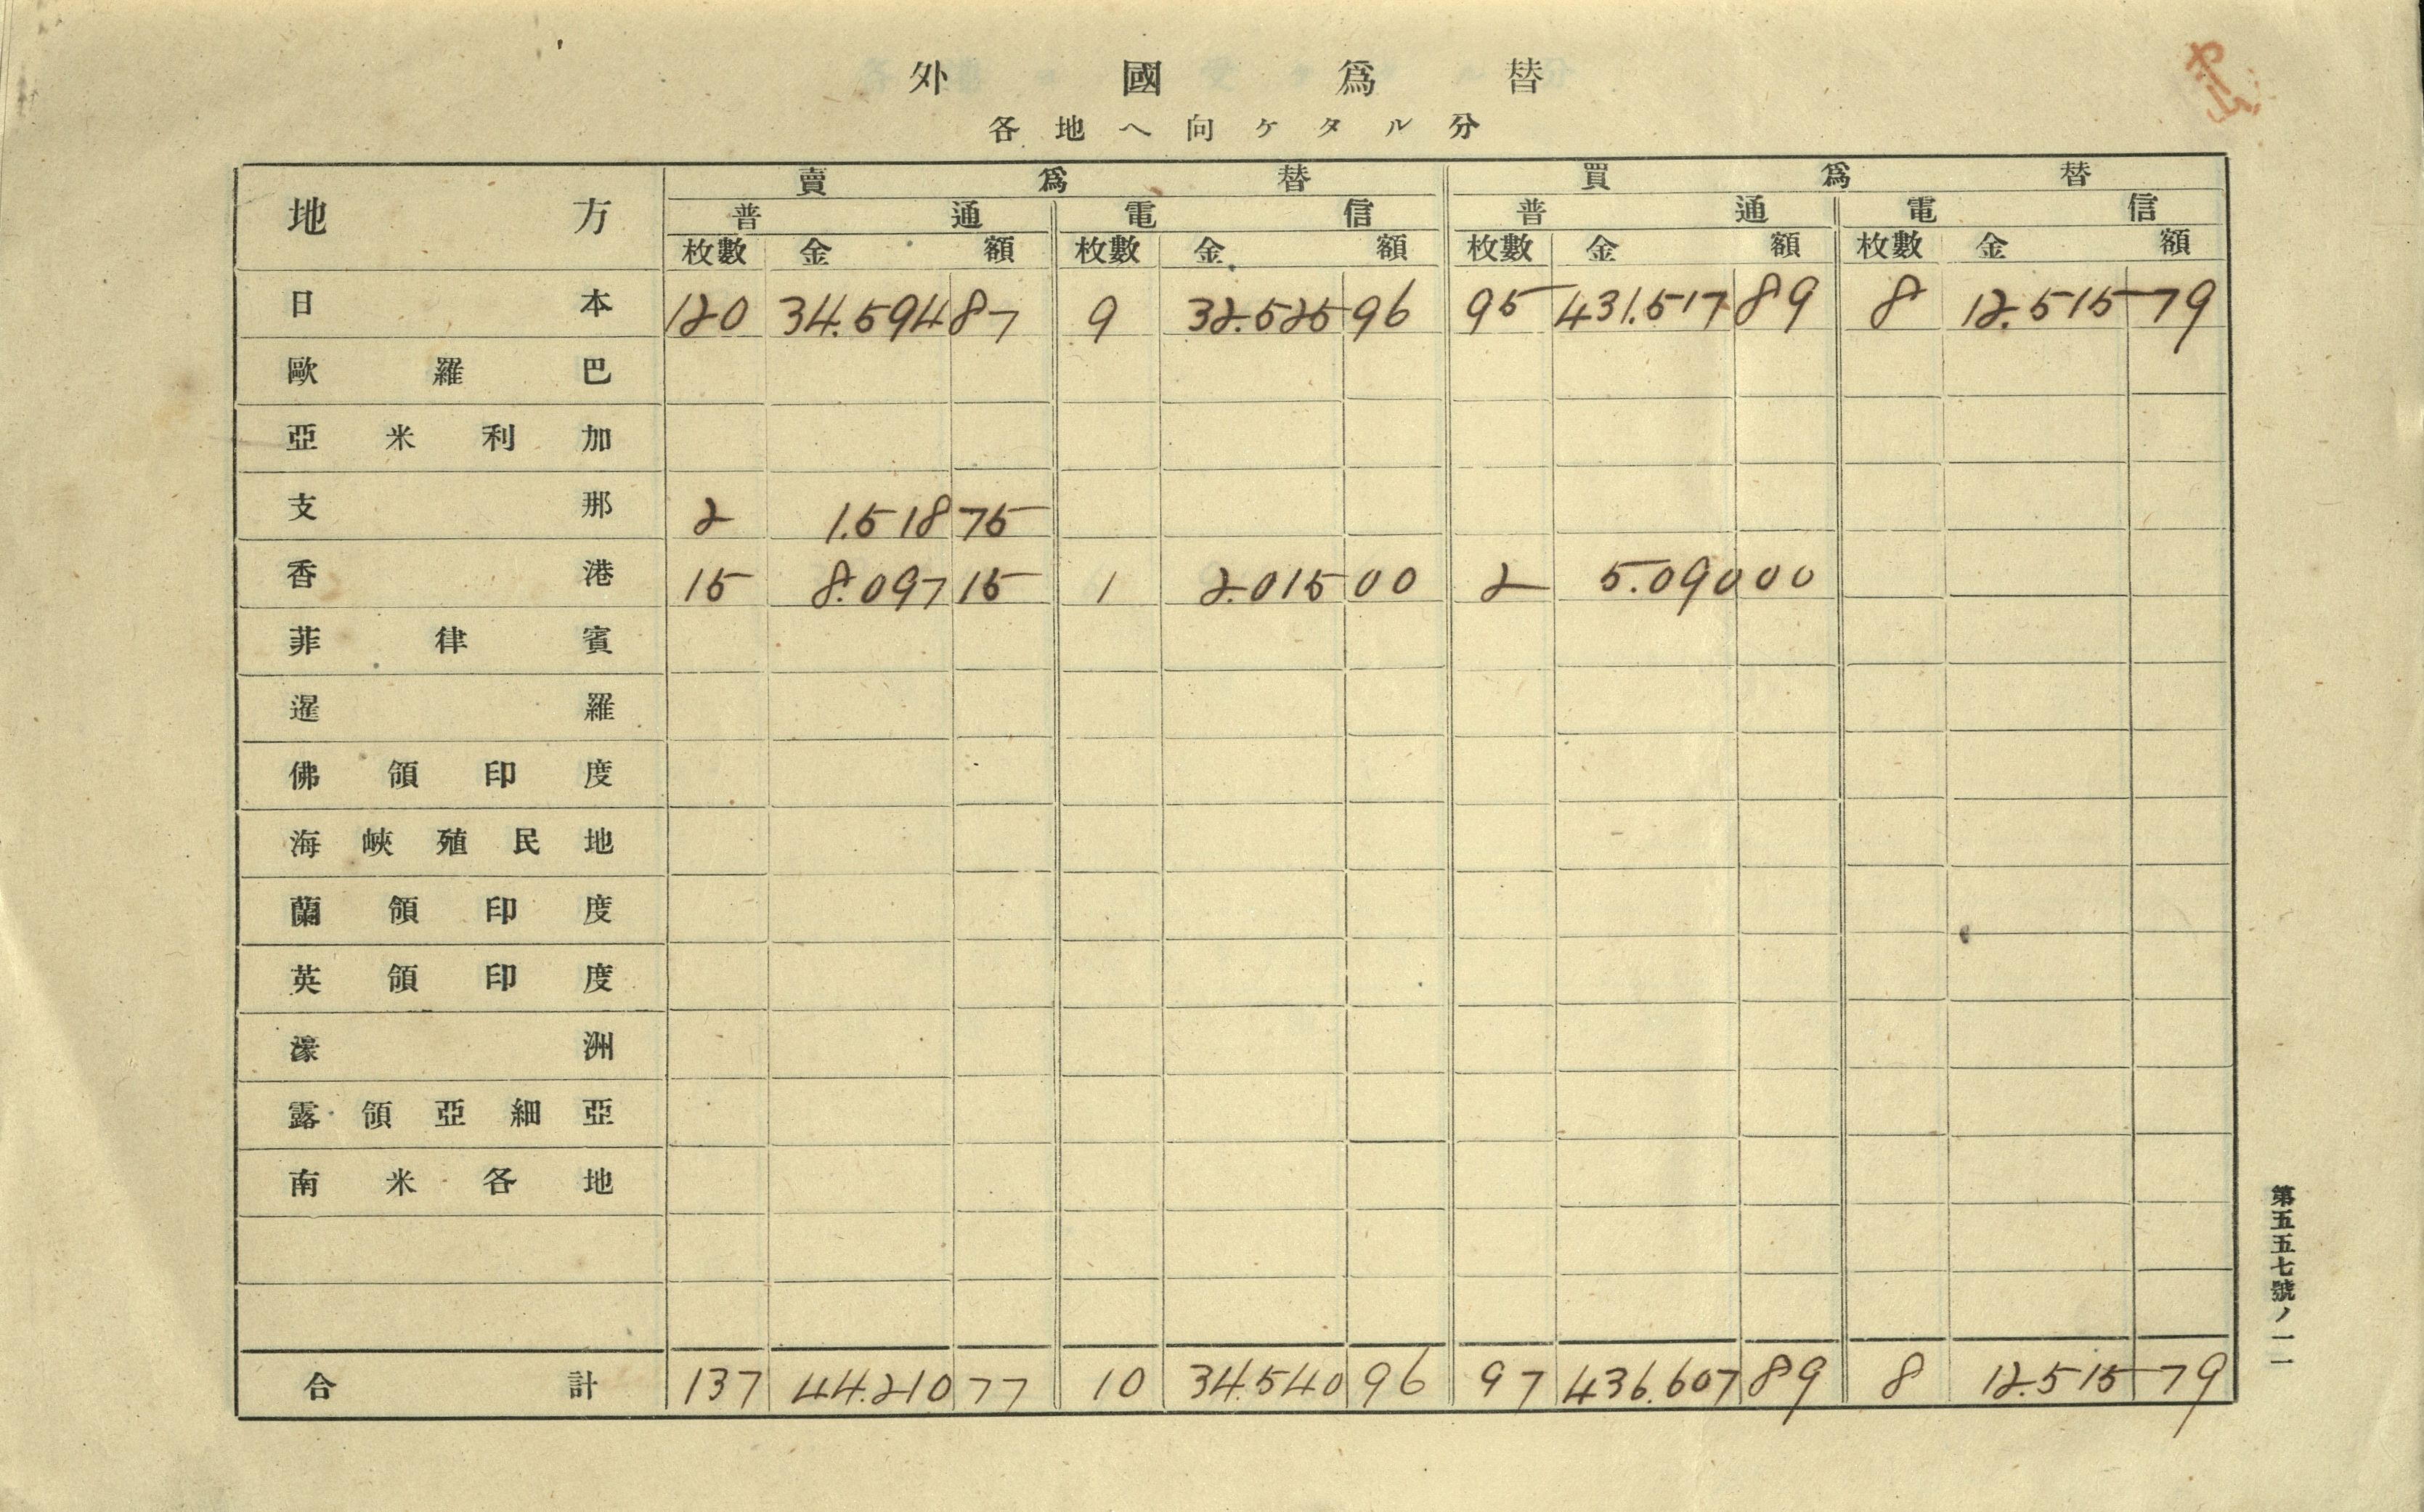 外國爲替
各地ヘ向ケタル分
地方 賣爲替 買爲替
普通 電信 普通 電信
枚數 金額 枚數 金額 枚數 金額 枚數 金額
日本 120 34.594 87 9 32.525 96 95 431.517 89 8 12.515 79
歐羅巴
亞米利加
支那 2 1.518 75
香港 15 8.097 15 1 2.015 00 2 5.090 00
菲律賓
暹羅
佛領印度
海峽殖民地
蘭領印度
英領印度
濠洲
露領亞細亞
南米各地
合計 137 44.210 77 10 34.540 96 97 436.607 89 8 12.515 79
第五五七號ノ一一